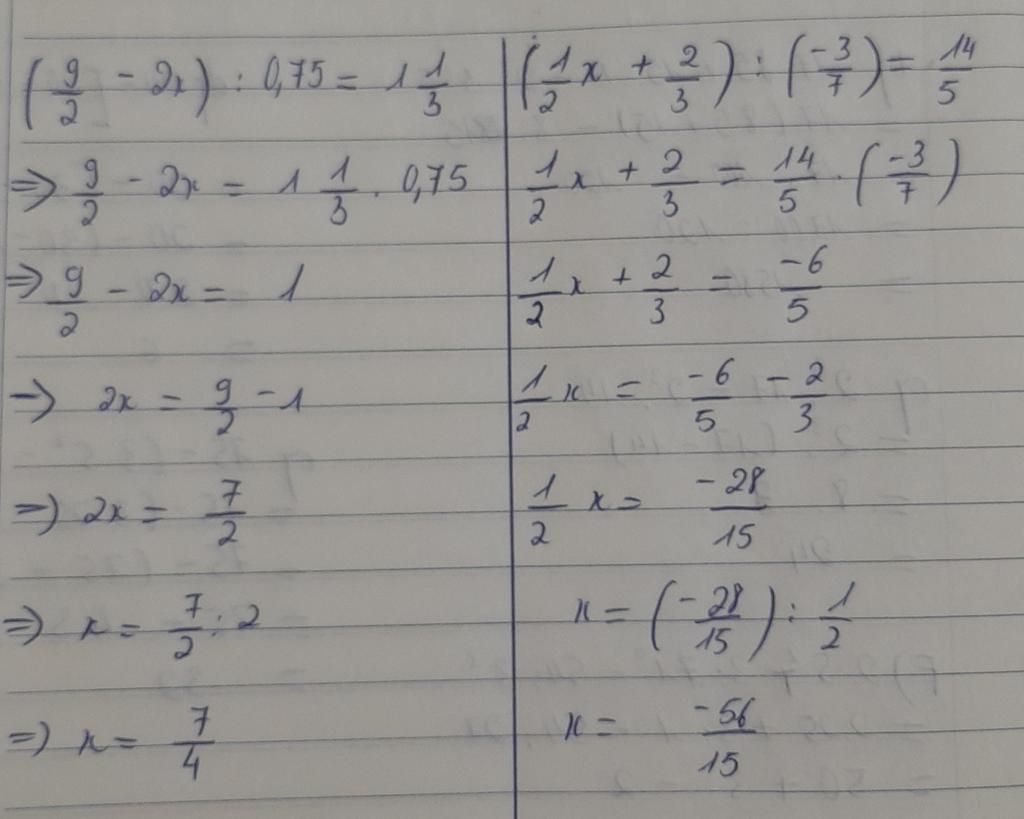 (9/2 - 2x) : 0,75 = 1 1/3
=> 9/2 - 2x = 1 1/3 . 0,75
=> 9/2 - 2x = 1
=> 2x = 9/2 - 1
=> 2x = 7/2
=> x = 7/2 : 2
=> x = 7/4
(1/2 x + 2/3) : (-3/7) = 14/5
1/2 x + 2/3 = 14/5 . (-3/7)
1/2 x + 2/3 = -6/5
1/2 x = -6/5 - 2/3
1/2 x = -28/15
x = (-28/15) : 1/2
x = -56/15